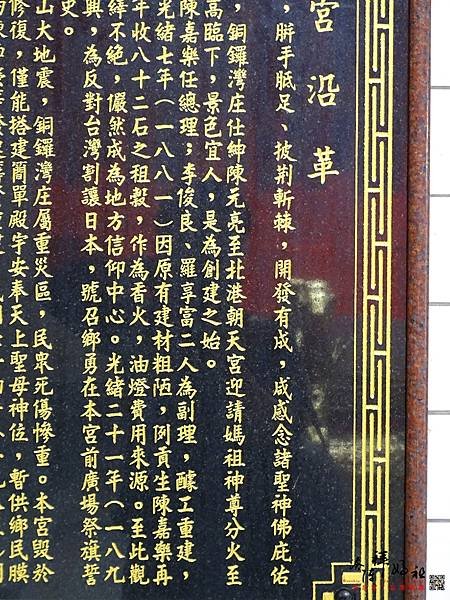 宮沿革
，胼手胝足、披荆斬棘，開發有成，咸感念諸聖神佛庇佑
，銅鑼灣庄仕紳陳元亮至北港朝天宮迎請媽祖神尊分火至
高臨下，景色宜人，是為創建之始。
陳嘉樂任總理；李俊良、羅享富二人為副理，醵工重建，
光緒七年（一八八一）因原有建材粗陋，例貢生陳嘉樂再
年收八十二石之租穀，作為香火，油燈費用來源。至此觀
繹不絕，儼然成為地方信仰中心。光緒二十一年（一八九
興，為反對台灣割讓日本，號召鄉勇在本宮前廣場祭旗誓
史。
山大地震，銅鑼灣庄屬重災區，民眾死傷慘重。本宮毀於
修復，僅能搭建簡單殿宇安奉天上聖母神位，暫供鄉民膜